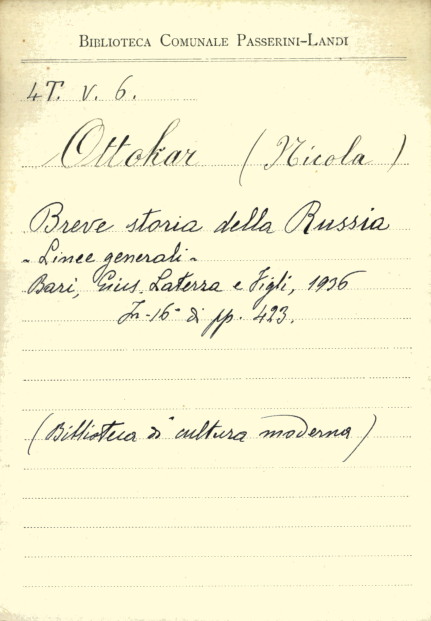 BIBLIOTECA COMUNALE PASSERINI-LANDI
4T. v. 6.
Ottokar (Nicola)
Breve storia della Russia
- Linee generali -
Bari, Gius. Laterza e Figli, 1936
In-16° di pp. 423.
(Biblioteca di cultura moderna)